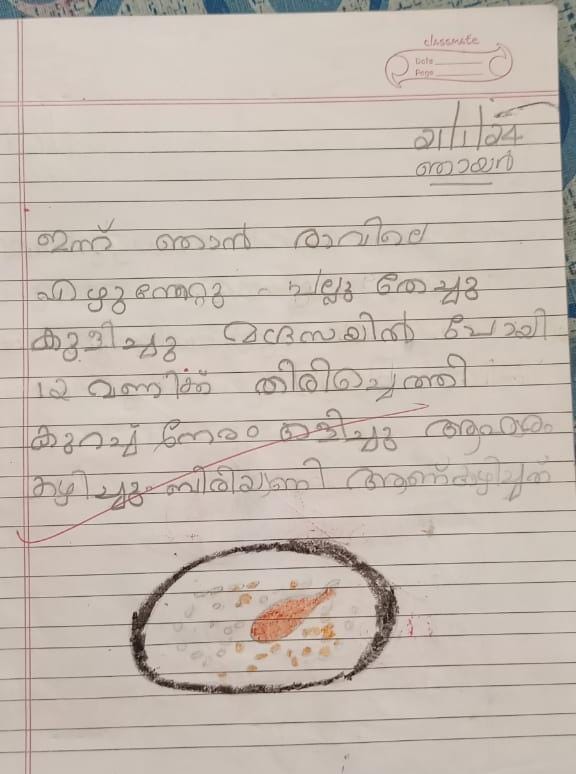 classmate
Date
Page
21/1/24
ഞായർ
ഇന്ന് ഞാൻ രാവിലെ
എഴുന്നേറ്റു പല്ലു തേച്ചു
കുളിച്ചു മദ്രസയിൽ പോയി
12 മണിക്ക് തിരിച്ചെത്തി
കുറച്ച് നേരം കളിച്ചു ആഹാരം
കഴിച്ചു ബിരിയാണി ആണ് കഴിച്ചത്